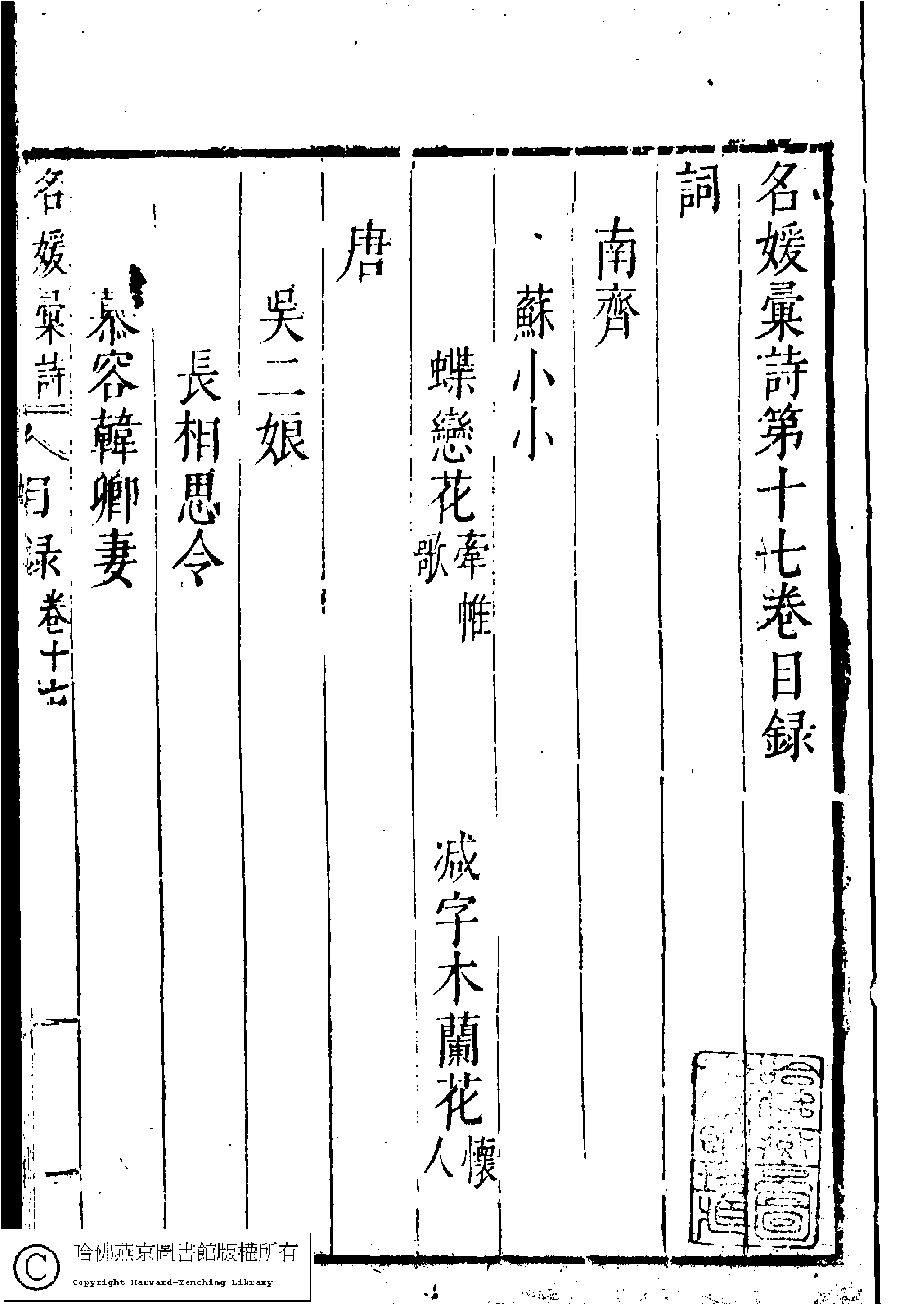 名媛彙詩第十七卷目録
詞
南齊
蘇小小
蝶戀花牽帷歌 减字木蘭花懷人
唐
吳二娘
長相思令
慕容韓卿妻
名媛彙詩 目録卷十七
哈佛燕京圖書館版權所有
Copyright Harvard-Yenching Library